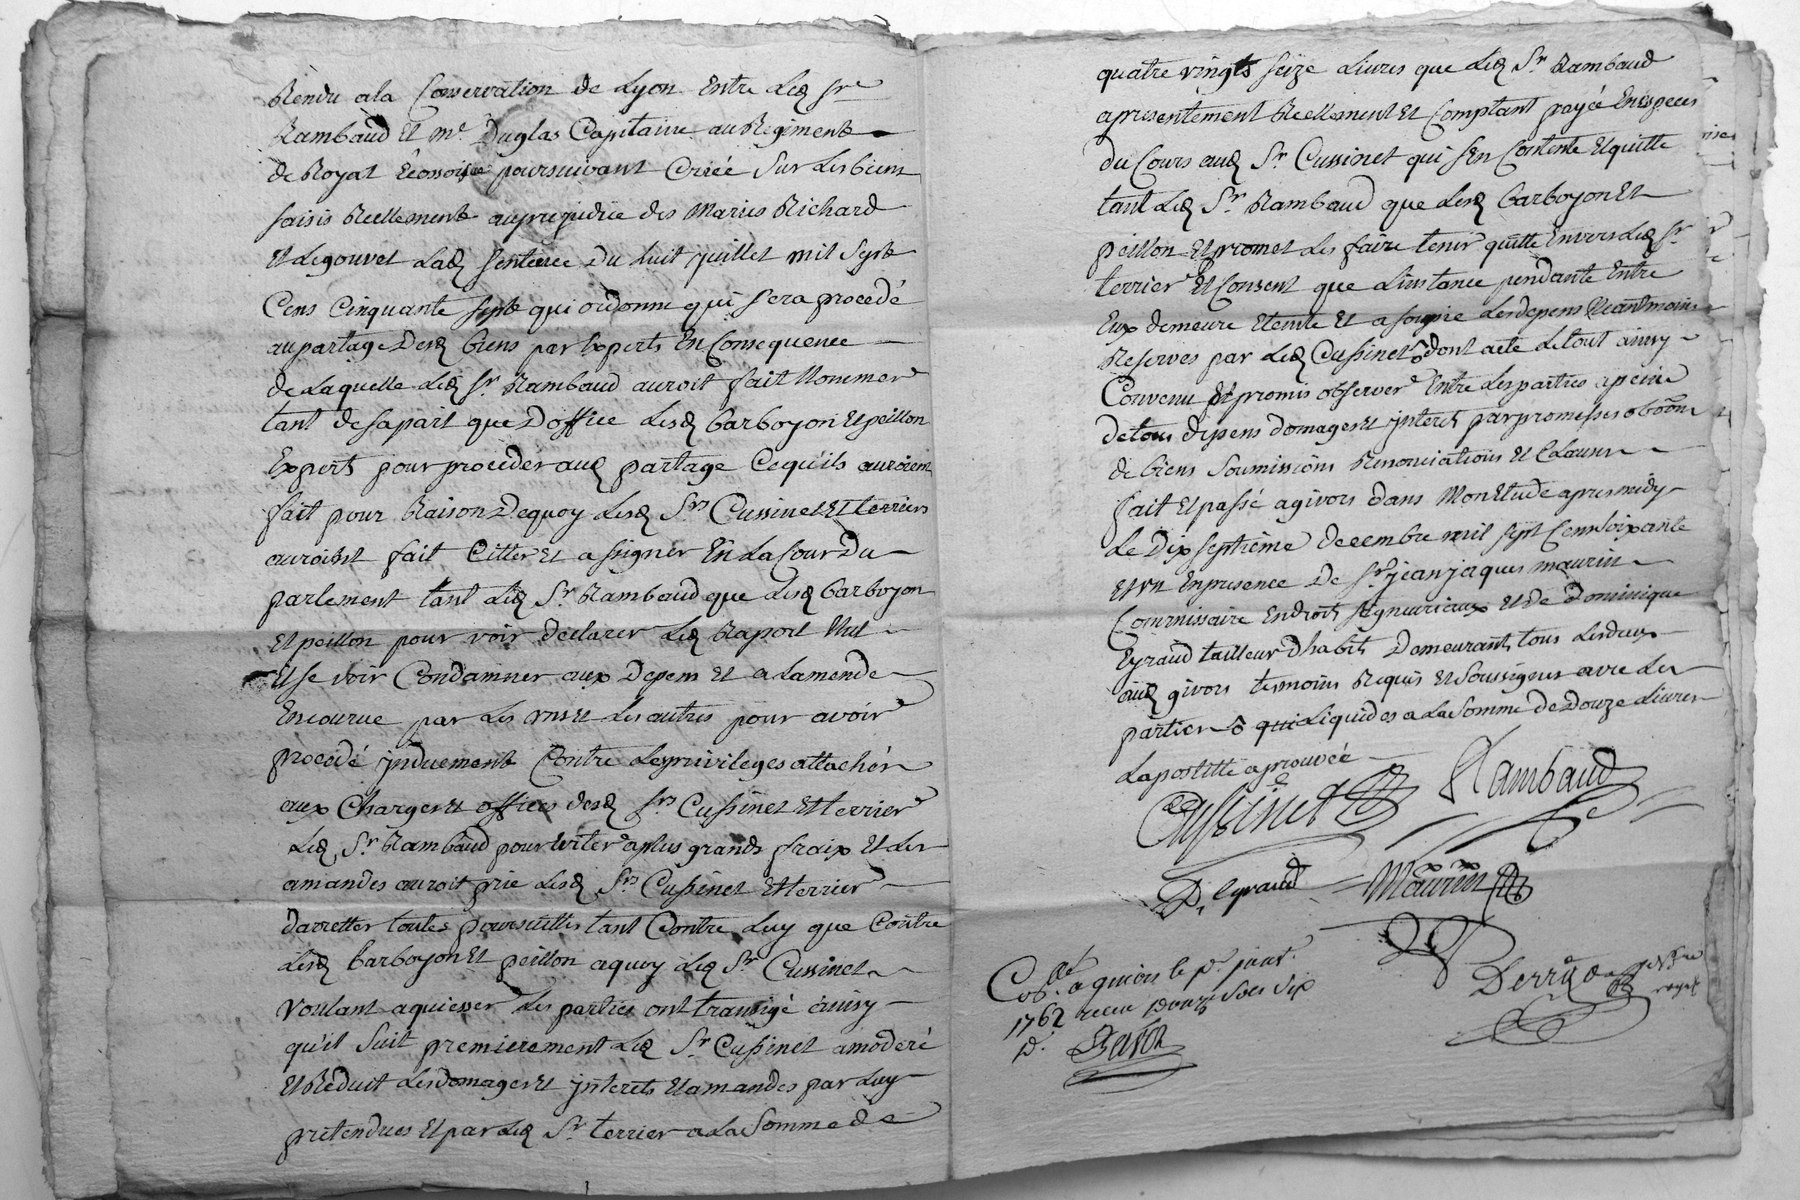 Rendu ala Conservation de Lyon Entre Led. Sr
Rambaud Et Mr Duglas Capitaine au Regiment
de Royal Ecossois poursuivant Criée Sur Les biens
saisis Reellement auprejudice des Maries Richard
Et Legouvet Lad. Sentence Du huit juillet mil Sept
Cens Cinquante Sept qui ordonne qu'i Sera procedé
au partage Desd. biens par Experts En Consequence
de Laquelle Led. Sr. Rambaud auroit fait Nommer
tant de sa part que Doffice Lesd. Carboyon Et peillon
Experts pour proceder aud. partage Cequ'ils auroient
fait pour Raison Dequoy Lesd. Srs Cussinet Et terrier
auroient fait Citter Et assigner En La Cour Du
parlement tant Led. Sr. Rambaud que Lesd. Carboyon
Et peillon pour voir declarer Led. Raport Nul
Et se voir Condamner aux Depens Et a Lamende
Encourue par Les uns Et Les autres pour avoir
procedé jnduement Contre Les privileges attachés
aux Charges Et offices desd. Srs Cussinet Et terrier
Led. Sr. Rambaud pour eviter a plus grands fraix Et Les
amandes auroit prie Lesd. Srs Cussinet Et terrier
darretter toutes poursuittes tant Contre Luy que Contre
Lesd. Carboyon Et peillon a quoy Led. Sr. Cussinet
Voulant aquiesser Les parties ont transigé ainsy
qu'il Suit premierement Led. Sr. Cussinet a moderé
Et Reduit Les domages Et jnterets Et amandes par Luy
pretendues Et par Led. Sr. terrier a La Somme de
quatre vingts seize Livres que Led. Sr. Rambaud
a presentement Reellement Et Comptant payée En especes
du Cours aud. Sr. Cussinet qui S'En Contente Et quitte
tant Led. Sr. Rambaud que Lesd. Carboyon Et
peillon Et promet Les faire tenir quitte Envers Led. Sr
terrier Et Consent que Linstance pendante Entre
Eux demeure Eteinte Et assoupie Les depens Neantmoins
Reserves par Led. Cussinet dont acte Le tout ainsy
Convenu Et promis observer Entre Les parties a peine
de tous depens domages Et jnterets par promesses obbon
de biens Soumissions Renonciations Et Clauses
fait Et passé a givors dans Mon Etude apres midy
Le Dix Septieme Decembre mil Sept Cens Soixante
Et un En presence De Sr. jean jaques maurin
Commissaire En droits Seigneuriaux Et De Dominique
Eyraud tailleur dhabits Demeurants tous Les deux
aud. givors temoins Requis Et Soussignes avec Les
parties qui Liquides a La Somme de Douze Livres
La postille aprouvée
Cussinet Rambaud
D. Eyraud Maurin
Collé a givors le pr. janr.
1762 receu Douze Sols Six
d.